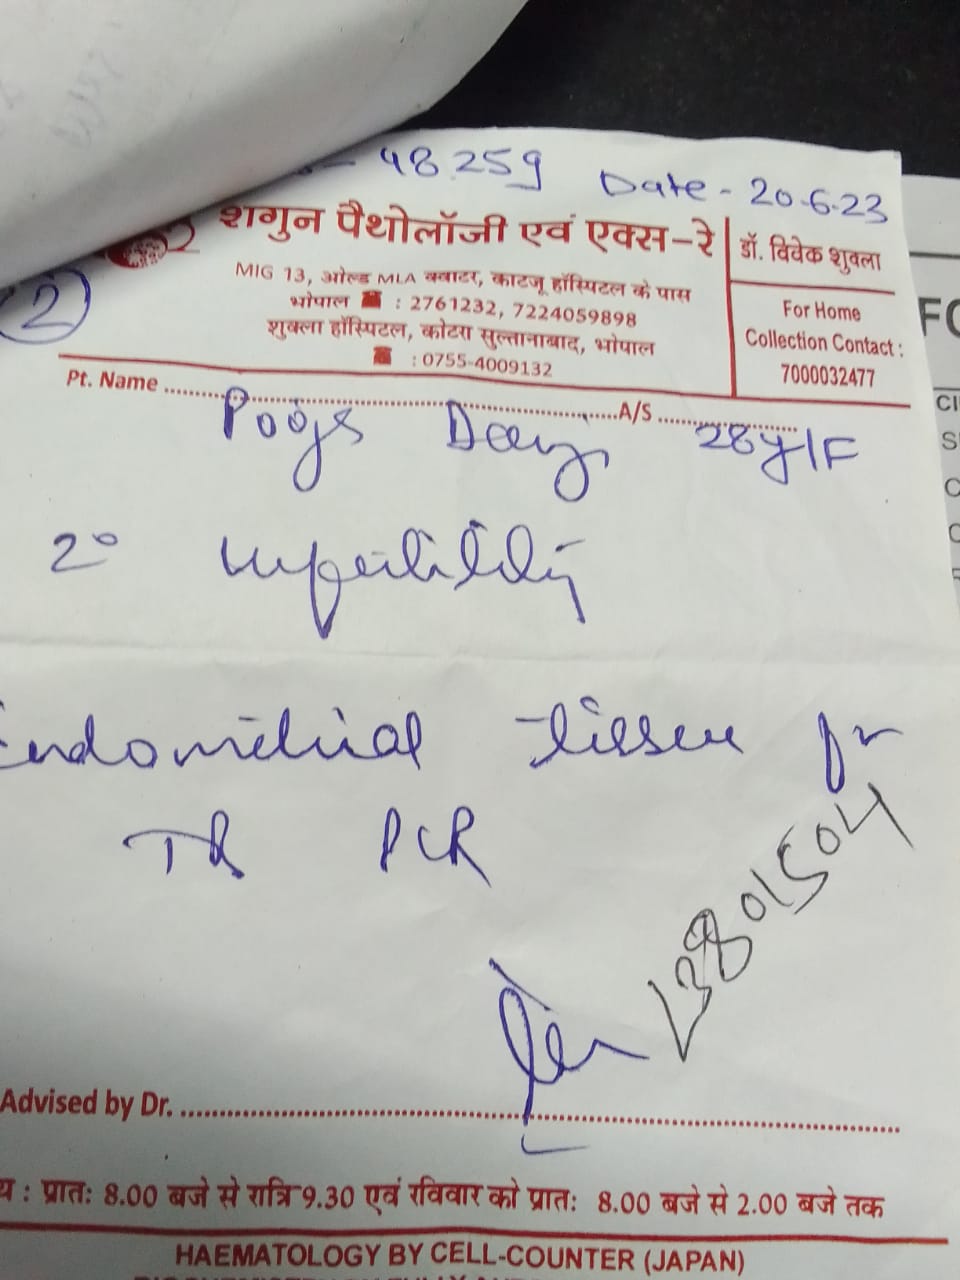 48259 Date - 20.6.23
शगुन पैथोलॉजी एवं एक्स-रे
डॉ. विवेक शुक्ला
MIG 13, ओल्ड MLA क्वाटर, काटजू हॉस्पिटल के पास
भोपाल ☎ : 2761232, 7224059898
शुक्ला हॉस्पिटल, कोटरा सुल्तानाबाद, भोपाल
☎ : 0755-4009132
For Home
Collection Contact :
7000032477
2
Pt. Name ............ A/S ............
28y/F
2° Infertility
Endometrial tissue for
TB PCR
13801504
Advised by Dr. ............
: प्रातः 8.00 बजे से रात्रि 9.30 एवं रविवार को प्रातः 8.00 बजे से 2.00 बजे तक
HAEMATOLOGY BY CELL-COUNTER (JAPAN)